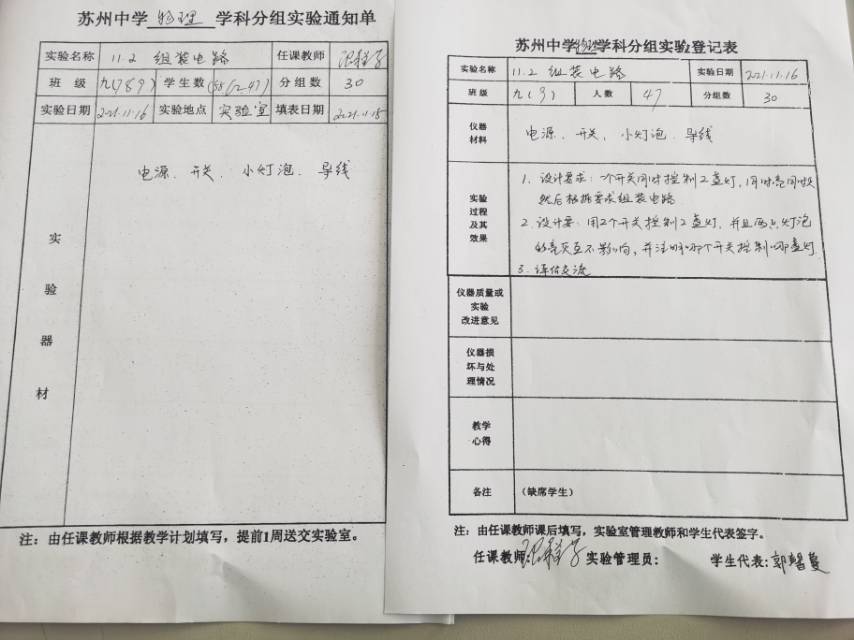 苏州中学 物理 学科分组实验通知单
实验名称 11.2 组装电路 任课教师
班 级 九(789) 学生数 分组数 30
实验日期 2021.11.16 实验地点 实验室 填表日期 2021.11.15
实验器材
电源、开关、小灯泡、导线
注：由任课教师根据教学计划填写，提前1周送交实验室。
苏州中学物理学科分组实验登记表
实验名称 11.2 组装电路 实验日期 2021.11.16
班 级 九(9) 人 数 47 分组数 30
仪器材料 电源、开关、小灯泡、导线
实验过程及其效果
1. 设计要求：一个开关同时控制2盏灯，同时亮同时灭
然后根据要求组装电路
2. 设计要：用2个开关控制2盏灯，并且两点灯泡
的亮灭互不影响，并注明哪个开关控制哪盏灯
3. 评估交流
仪器质量或实验改进意见
仪器损坏与处理情况
教学心得
备注 （缺席学生）
注：由任课教师课后填写，实验室管理教师和学生代表签字。
任课教师: 实验管理员: 学生代表: